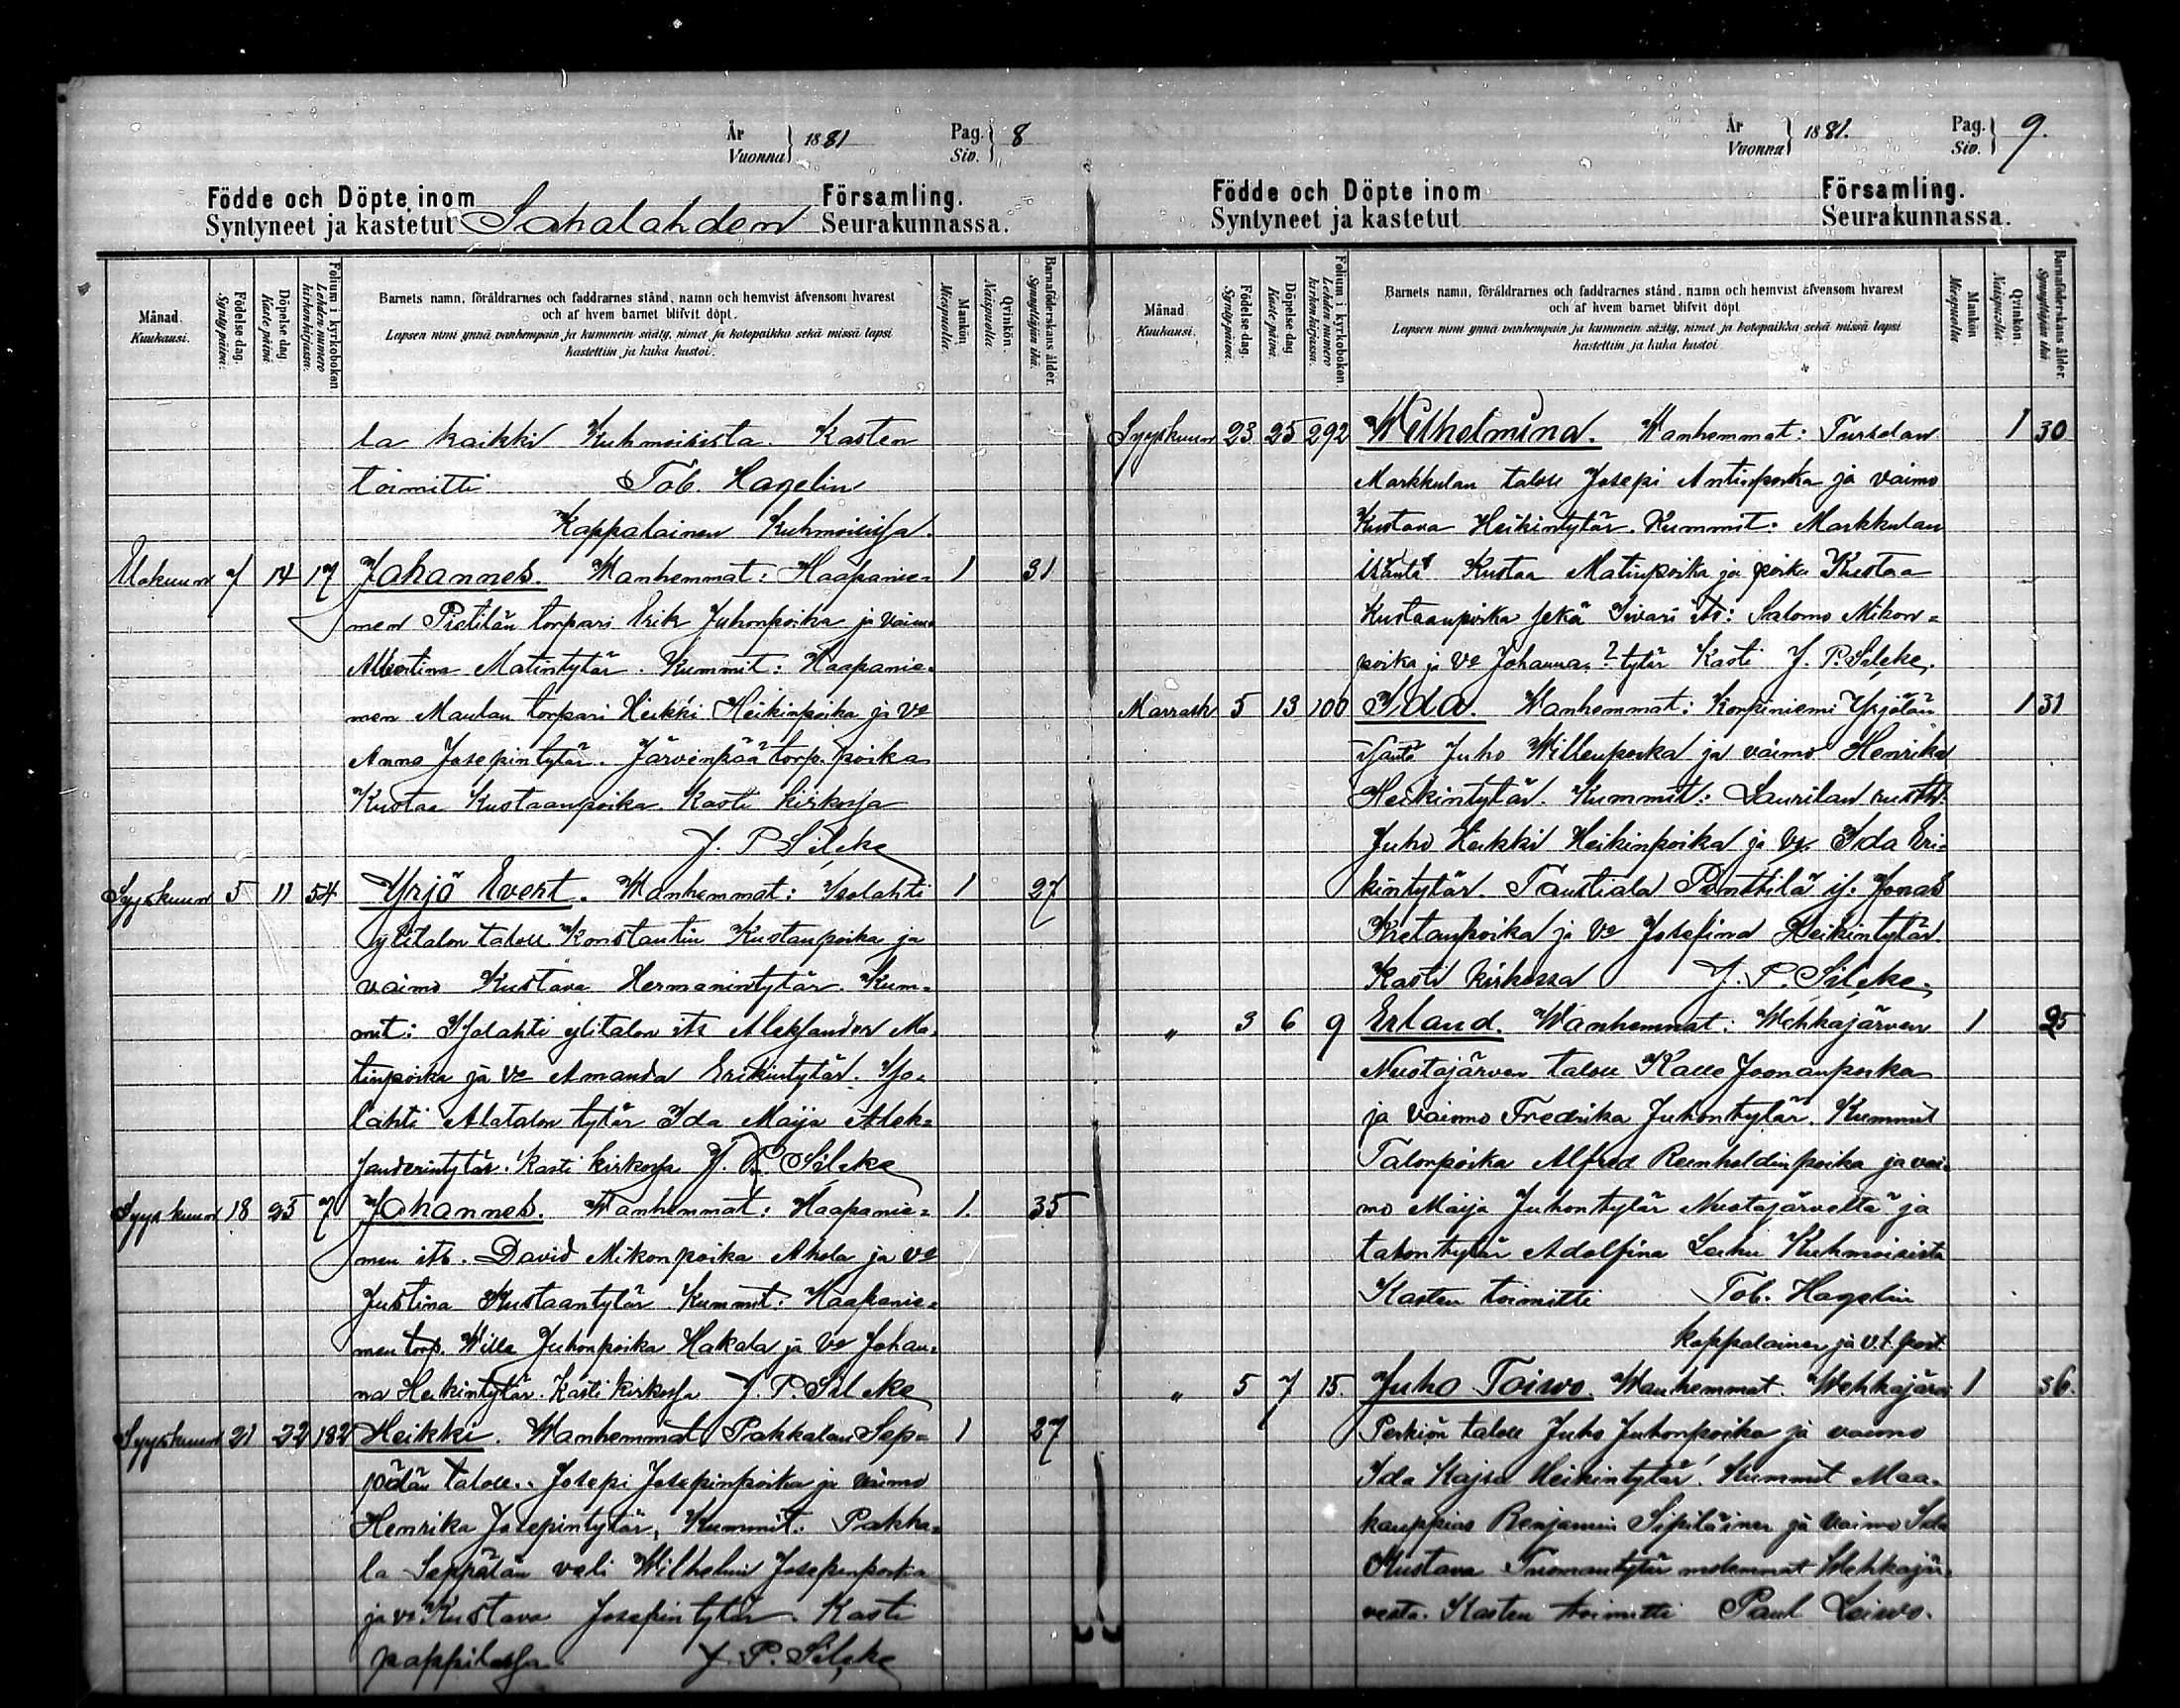 År Vuonna 1881 Pag. Siv. 8
Födde och Döpte inom Församling.
Syntyneet ja kastetut Sahalahden Seurakunnassa.
Månad. Kuukausi.
Födelse-dag. Synty-päivä.
Döpelse dag. Kaste-päivä.
Folium i kyrkobokon. Lehden numero kirkonkirjassa.
Barnets namn, föräldrarnes och faddrarnes stånd, namn och hemvist äfvensom hvarest
och af hvem barnet blifvit döpt.
Lapsen nimi ynnä vanhempain ja kummein sääty, nimet ja kotopaikka sekä missä lapsi
kastettiin ja kuka kastoi.
Mankön. Miespuolia.
Qvinkön. Naispuolia.
Barnaföderskans ålder. Synnyttäjän ikä.
la kaikki Kuhmoisista. Kasten
toimitti Tob. Hagelin
Kappalainen Kuhmoisissa.
Elokuun 7 14 17 Johannes. Wanhemmat: Haapanie= 1 31
men Pietilän torpari Erik Juhonpoika ja vaimo
Albertina Matintytär. Kummit: Haapanie=
men Maulan torpari Heikki Heikinpoika ja vo
Anna Josepintytär. Järvenpää torp. poika
Kustaa Kustaanpoika. Kasti kirkossa
J. P. Sileke
Syyskuun 5 11 54 Yrjö Evert. Wanhemmat: Isolahti 1 27
ylitalon talou Konstantin Kustanpoika ja
vaimo Kustava Hermanintytär. Kum=
mit: Isolahti ylitalon its Aleksander Ma=
tinpoika ja vo Amanda Erikintytär. Iso=
lahti Alatalon tytär Ida Maija Alek=
sanderintytär. Kasti kirkossa J. P. Sileke
Syyskuun 18 25 7 Johannes. Wanhemmat: Haapanie= 1. 35
men its. David Mikonpoika Ahola ja vo
Justina Kustaantytär. Kummit: Haapanie=
men torp. Wille Juhonpoika Hakala ja vo Johan=
na Heikintytär. Kasti kirkossa J. P. Sileke
Syyskuun 21 22 182 Heikki. Wanhemmat Pakkalan Sep= 1 27
pälän talou. Josepi Josepinpoika ja vaimo
Henrika Josepintytär, Kummit: Pakka=
la Seppälän veli Wilhelmi Josepinpoika
ja vo Kustava Josepintytär. Kasti
pappilassa. J. P. Sileke
År Vuonna 1881. Pag. Siv. 9.
Födde och Döpte inom Församling.
Syntyneet ja kastetut Seurakunnassa.
Månad Kuukausi.
Födelse-dag. Synty-päivä.
Döpelse dag Kaste-päivä.
Folium i kyrkobokon. Lehden numero kirkonkirjassa.
Barnets namn, föräldrarnes och faddrarnes stånd, namn och hemvist äfvensom hvarest
och af hvem barnet blifvit döpt
Lapsen nimi ynnä vanhempain ja kummein sääty, nimet ja kotopaikka sekä missä lapsi
kastettiin ja kuka kastoi
Mankön Miespuolia
Qvinkön. Naispuolia.
Barnaföderskans ålder. Synnyttäjän ikä
Syyskuun 23 25 292 Wilhelmina. Wanhemmat: Tursolan 1 30
Markkulan talou Josepi Antinpoika ja vaimo
Kustava Heikintytär. Kummit: Markkulan
isäntä Kustaa Matinpoika ja poika Kustaa
Kustaanpoika sekä Iivari its: Salomo Mikon=
poika ja vo Johanna ? tytär Kasti J. P. Sileke.
Marrask 5 13 100 Ida. Wanhemmat: Korpiniemi Yrjölän 1 31
isäntä Juho Willenpoika ja vaimo Henrika
Heikintytär. Kummit: Laurilan rusth.
Juho Heikki Heikinpoika ja vo Ida Eri=
kintytär. Taustiala Penttilä is. Jonas
Kustanpoika ja vo Josefina Heikintytär.
Kasti kirkossa J. P. Sileke.
" 3 6 9 Erland. Wanhemmat: Wehkajärven 1 25
Nustajärven talou Kalle Joonanpoika
ja vaimo Fredrika Juhontytär. Kummit
Talonpoika Alfred Reinholdinpoika ja vai=
mo Maija Juhontytär Nustajärveltä ja
talontytär Adolfina Kuhmoisista
Kasten toimitti Tob. Hagelin
kappalainen ja v.t. past
" 5 7 15. Juho Toivo. Wanhemmat. Wehkajärvi 1 36.
Perkiön talou Juho Juhonpoika ja vaimo
Ida Kajsa Heikintytär. Kummit Maa=
kauppias Benjamin Sipiläinen ja vaimo Ida
Kustava Tuomantytär molemmat Wehkajär=
vestä. Kasten toimitti Paul Loivo.